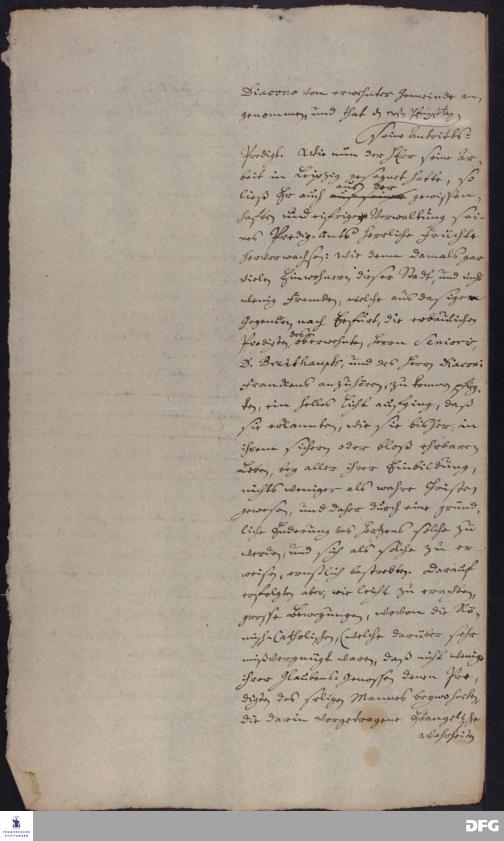 Diacono von erwehnter Gemeinde an-
genommen, und that d. Pfingsttag
seine Antritts-
Predigt. Wie nun der Herr seine Ar-
beit in Leipzig gesegnet hatte, so
ließ Er auch aus der gewissen-
haften und eifrigen Verwaltung sei-
nes Predig-Amts herrliche Früchte
hervorwachsen: wie denn damals gar
vielen Einwohnern dieser Stadt, und nicht
wenig Fremden, welche aus dasigen
Gegenden nach Erfurt, die erbaulichen
Predigten oberwehnten Herrn Senioris,
D. Breithaupts, und des Herrn Diaconi
Franckens anzuhören, zu kommen pfleg-
ten, ein helles Licht aufging, daß
sie erkannten, wie sie bisher, in
ihrem sichern oder bloß ehrbaren
Leben, bey aller ihrer Einbildung,
nichts weniger als wahre Christen
gewesen, und daher durch eine gründ-
liche Änderung des Hertzens solche zu
werden, und sich als solche zu er-
weisen, ernstlich bestrebten. Darauf
erfolgten aber, wie leicht zu erachten,
grosse Bewegungen, wovon die Rö-
misch-Catholischen, (welche darüber sehr
mißvergnügt waren, daß nicht wenige
ihrer Glaubens-Genossen denen Pre-
digten des seligen Mannes beywohnten,
die darin vorgetragene Evangelische
Wahrheiten
FRANCKESCHE
STIFTUNGEN
DFG